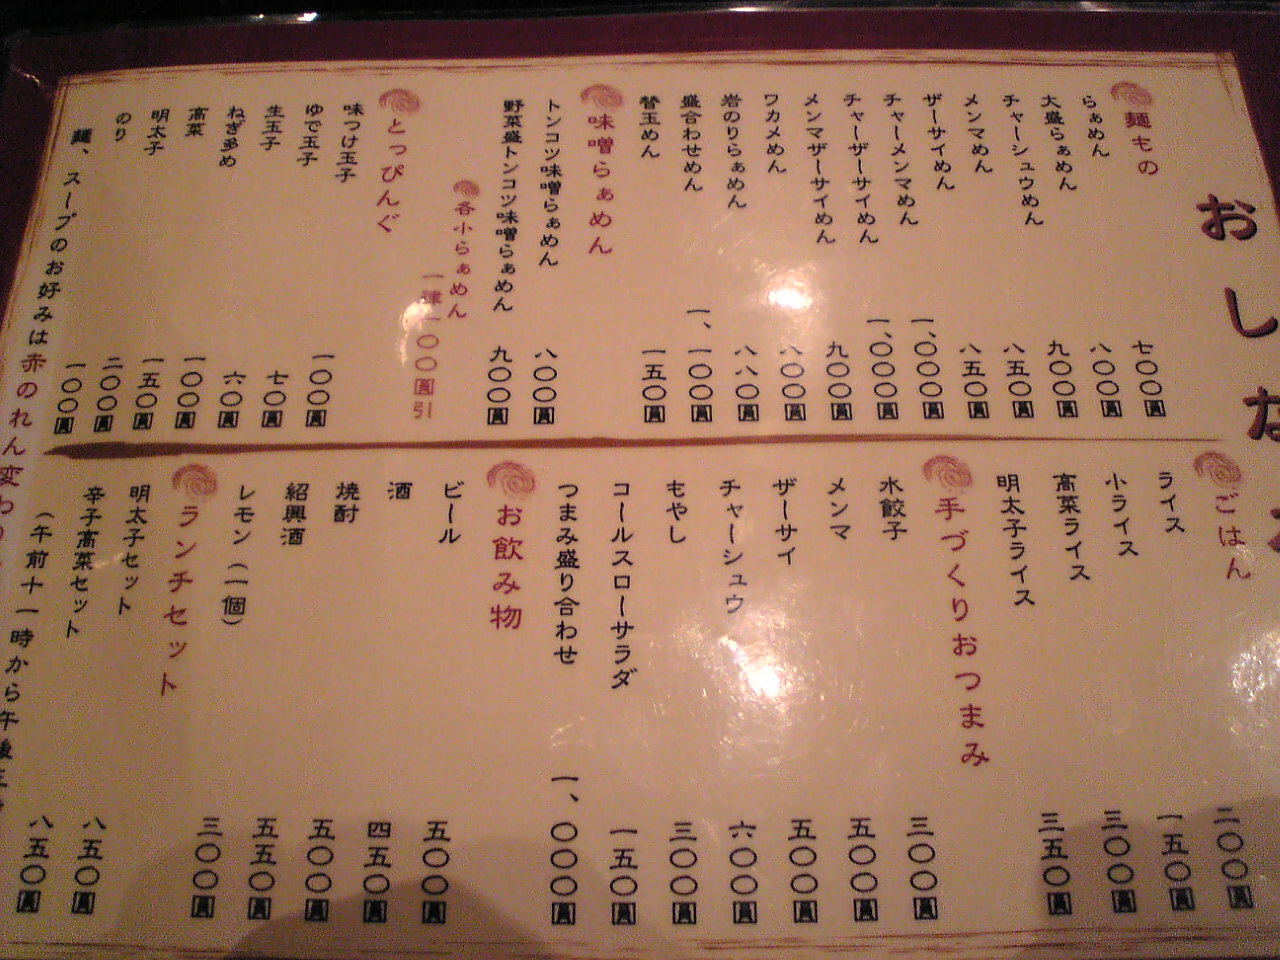 おしながき
麺もの
らぁめん 七〇〇圓
大盛らぁめん 八〇〇圓
チャーシュウめん 九〇〇圓
メンマめん 八五〇圓
ザーサイめん 八五〇圓
チャーメンマめん 一、〇〇〇圓
チャーザーサイめん 一、〇〇〇圓
メンマザーサイめん 九〇〇圓
ワカメめん 八〇〇圓
岩のりらぁめん 八八〇圓
盛合わせめん 一、一〇〇圓
替玉めん 一五〇圓
味噌らぁめん
トンコツ味噌らぁめん 八〇〇圓
野菜盛トンコツ味噌らぁめん 九〇〇圓
各小らぁめん
一律一〇〇圓引
とっぴんぐ
味つけ玉子 一〇〇圓
ゆで玉子 七〇圓
生玉子 六〇圓
ねぎ多め 一〇〇圓
高菜 一五〇圓
明太子 二〇〇圓
のり 一〇〇圓
麺、スープのお好みは赤のれん変わり
ごはん
ライス 二〇〇圓
小ライス 一五〇圓
高菜ライス 三〇〇圓
明太子ライス 三五〇圓
手づくりおつまみ
水餃子 三〇〇圓
メンマ 五〇〇圓
ザーサイ 五〇〇圓
チャーシュウ 六〇〇圓
もやし 三〇〇圓
コールスローサラダ 一五〇圓
つまみ盛り合わせ 一、〇〇〇圓
お飲み物
ビール 五〇〇圓
酒 四五〇圓
焼酎 五〇〇圓
紹興酒 五五〇圓
レモン（一個） 三〇〇圓
ランチセット
明太子セット 八五〇圓
辛子高菜セット 八五〇圓
（午前十一時から午後